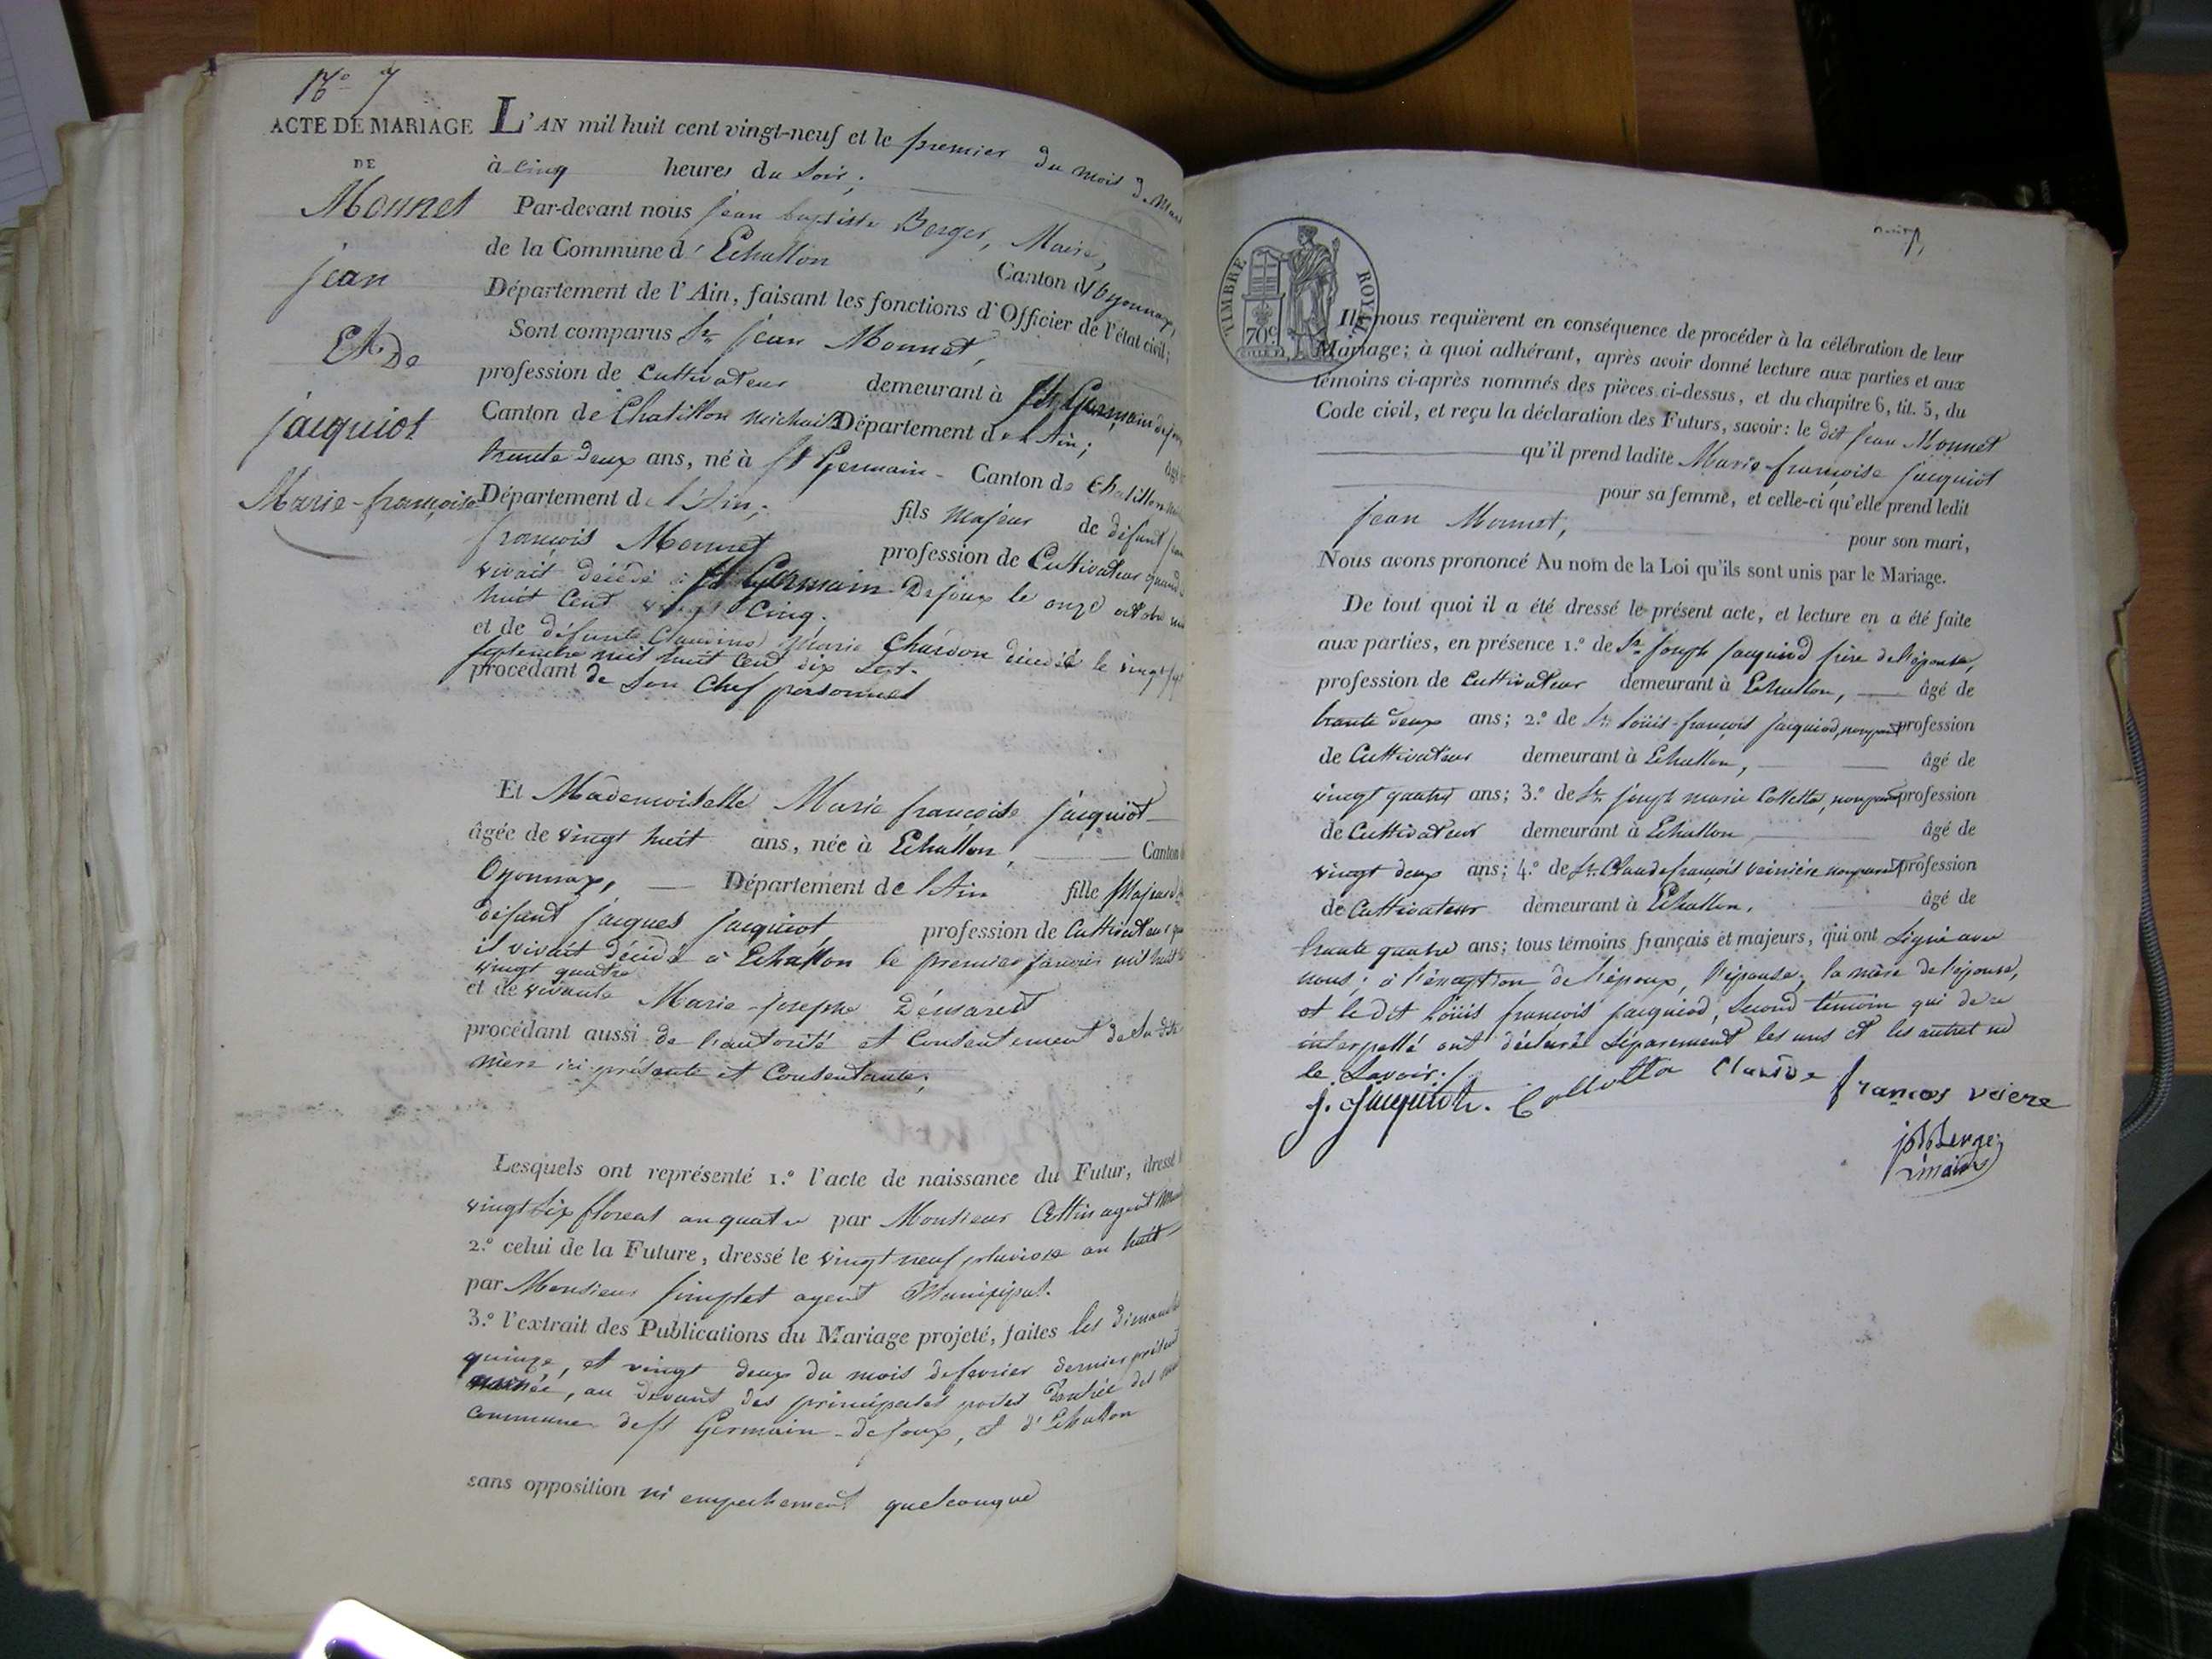 N° 7
ACTE DE MARIAGE
DE
Monnet
jean
Et De
jacquiot
Marie-françoise
L'AN mil huit cent vingt-neuf et le premier du mois de Mars
à cinq heures du soir;
Par-devant nous jean baptiste Berger, Maire,
de la Commune d'Echallon Canton d'Oyonnax,
Département de l'Ain, faisant les fonctions d'Officier de l'état civil;
Sont comparus Sr jean Monnet,
profession de cultivateur demeurant à St Germain de joux
Canton de Chatillon michaille Département de l'Ain; âgé
trente deux ans, né à St Germain - Canton de Chatillon
Département de l'Ain; fils majeur de défunt
françois Monnet profession de Cultivateur quand
vivait décédé à St Germain-Dejoux le onze octobre mil
huit cent vingt cinq.
et de défunte Claudine Marie Chardon décédée le vingt
septembre mil huit cent dix sept.
procédant de son Chef personnel
Et Mademoiselle Marie françoise jacquiot
âgée de vingt huit ans, née à Echallon, Canton
Oyonnax, Département de l'Ain fille Majeure
défunt jacques jacquiot profession de Cultivateur
il vivait décédé à Echallon le premier janvier mil huit
vingt quatre
et de vivante Marie-josephe Démarest
procédant aussi de l'autorité et consentement de sa dite
mère ici présente et Consentante;
Lesquels ont représenté 1.° l'acte de naissance du Futur, dressé
vingt six floreal an quatre par Monsieur agent
2.° celui de la Future, dressé le vingt neuf pluviose an huit
par Monsieur simplet agent Municipal.
3.° l'extrait des Publications du Mariage projeté, faites les dimanches
quinze, et vingt deux du mois de fevrier dernier présent
année, au devant des principales portes d'entrée des
communes de St Germain-dejoux, et d'Echallon
sans opposition ni empechement quelconque
TIMBRE ROYAL
70c
Ils nous requièrent en conséquence de procéder à la célébration de leur
Mariage; à quoi adhérant, après avoir donné lecture aux parties et aux
témoins ci-après nommés des pièces ci-dessus, et du chapitre 6, tit. 5, du
Code civil, et reçu la déclaration des Futurs, savoir: le dit jean Monnet
qu'il prend ladite Marie-françoise jacquiot
pour sa femme, et celle-ci qu'elle prend ledit
jean Monnet, pour son mari,
Nous avons prononcé Au nom de la Loi qu'ils sont unis par le Mariage.
De tout quoi il a été dressé le présent acte, et lecture en a été faite
aux parties, en présence 1.° de Sr joseph jacquiod frère de l'épouse,
profession de cultivateur demeurant à Echallon, âgé de
trente deux ans; 2.° de Sr Loüis-françois jacquiod, non parent profession
de Cultivateur demeurant à Echallon, âgé de
vingt quatre ans; 3.° de Sr joseph marie Colletta, non parent profession
de Cultivateur demeurant à Echallon âgé de
vingt deux ans; 4.° de Sr Claude françois veinière non parent profession
de Cultivateur demeurant à Echallon. âgé de
trente quatre ans; tous témoins français et majeurs, qui ont signé avec
nous; à l'exception de l'époux, l'épouse, la mère de l'épouse,
et le dit Loüis françois jacquiod, second témoin qui de ce
interpellé ont déclaré séparement les uns et les autres ne
le savoir./.
J. Jacquioth. Colletta Claude franços veiere
jbtBerger
maire